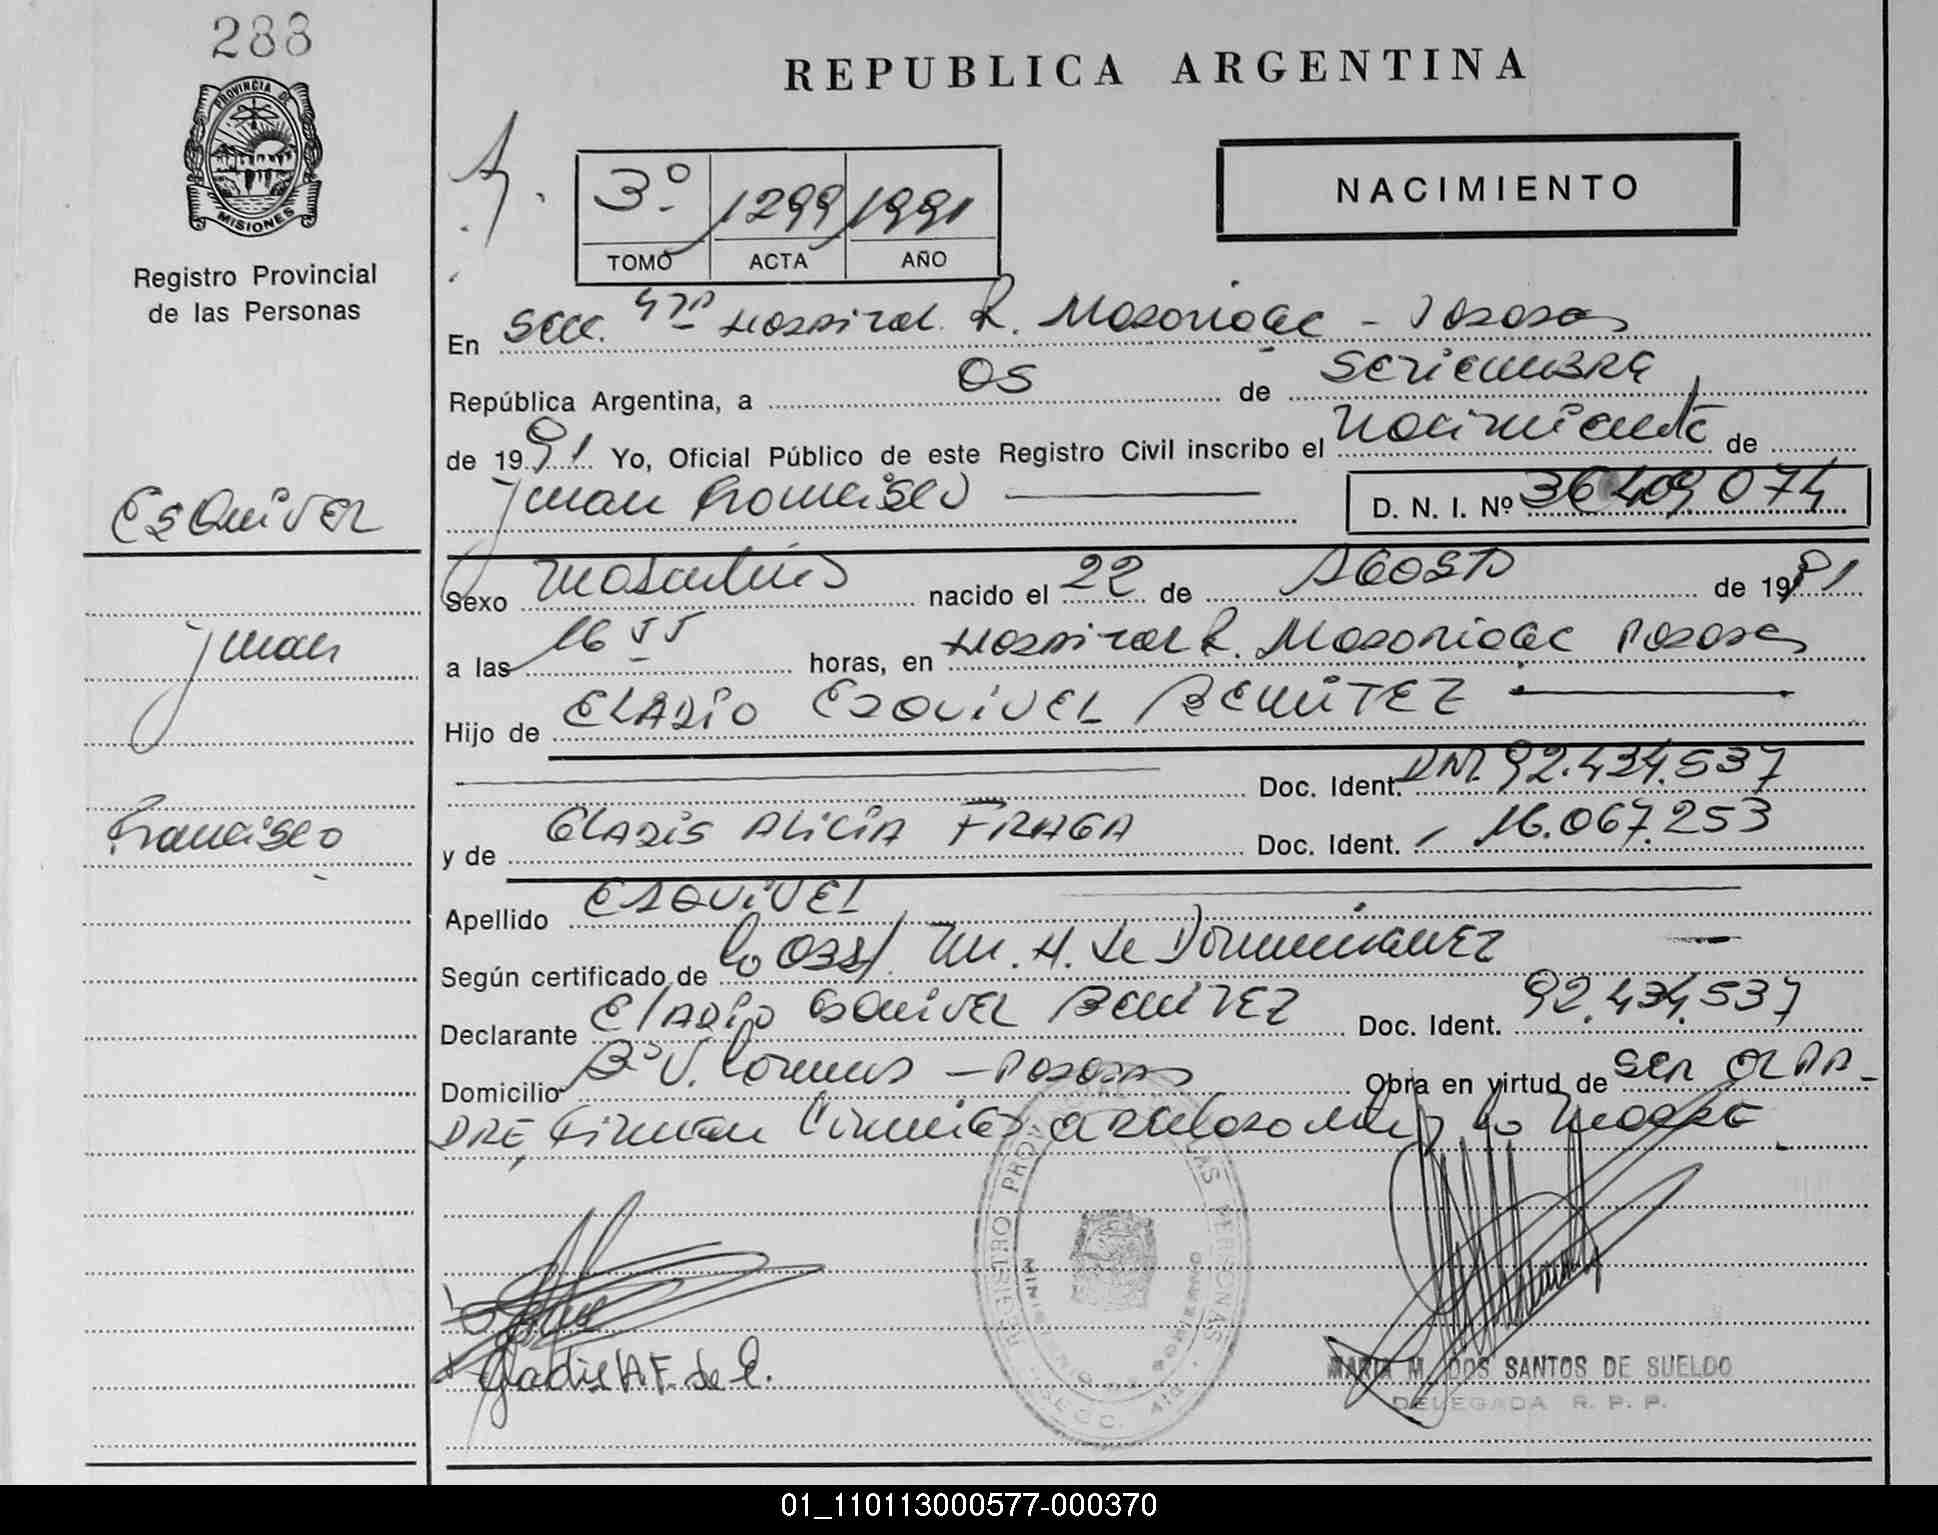 288
PROVINCIA DE
MISIONES
Registro Provincial
de las Personas
REPUBLICA ARGENTINA
3º 1299 1991
TOMO ACTA AÑO
NACIMIENTO
En Secc. 4ta Hospital R. Madariaga - Posadas
República Argentina, a 05 de Setiembre
de 1991 Yo, Oficial Público de este Registro Civil inscribo el nacimiento de
Juan Francisco
D. N. I. Nº 36.409.074
Esquivel
Juan
Francisco
Sexo Masculino nacido el 22 de Agosto de 1991
a las 16 55 horas, en Hospital R. Madariaga Posadas
Hijo de ELADIO ESQUIVEL BENITEZ
Doc. Ident. DNI 92.434.537
y de GLADIS ALICIA FRAGA Doc. Ident. 16.067.253
Apellido ESQUIVEL
Según certificado de la Obst. M. H. de Dominguez
Declarante Eladio Esquivel Benitez Doc. Ident. 92.434.537
Domicilio Bº V. - Posadas Obra en virtud de ser el pa-
dre, firman la madre
REGISTRO PROVINCIAL LAS PERSONAS
MINIS DE GOBIERNO
SECC. 4ta
Gladis A. F. de E.
MARIA M. DOS SANTOS DE SUELDO
DELEGADA R. P. P.
01_110113000577-000370